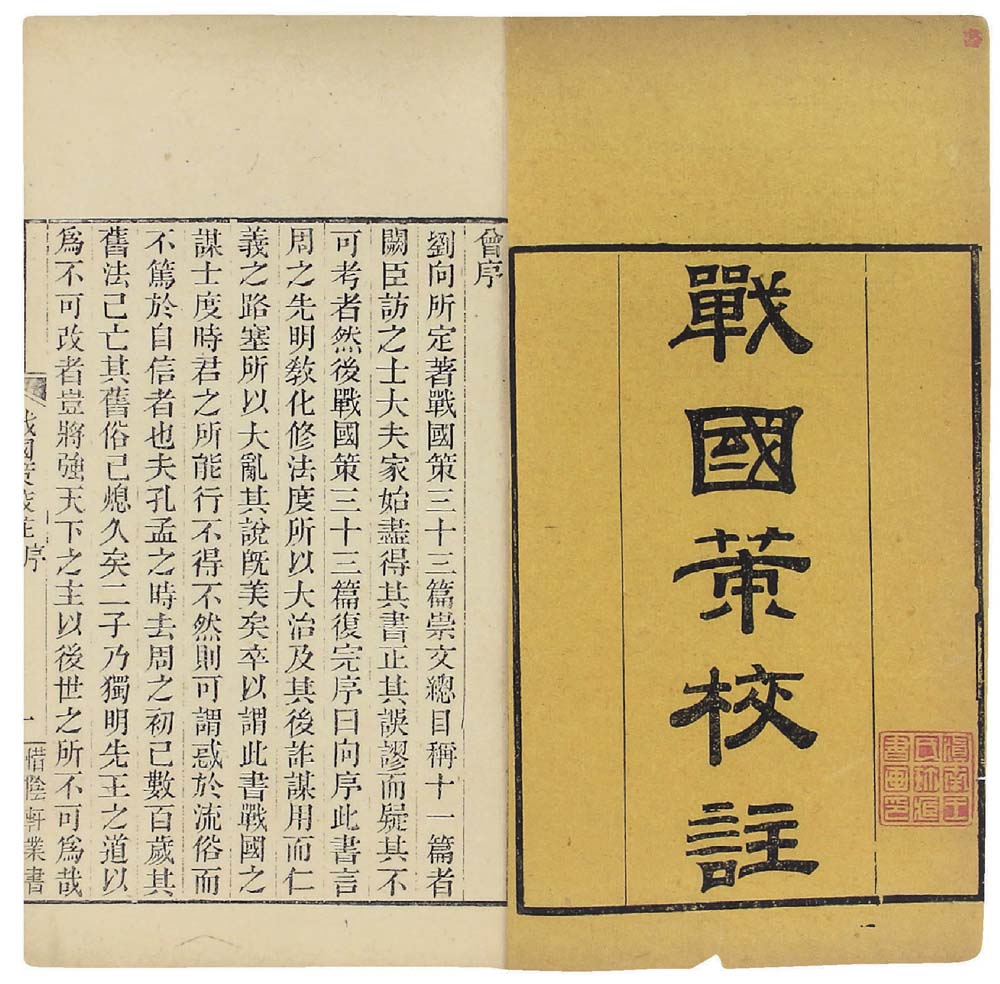 戰國策校註
曾序
劉向所定著戰國策三十三篇崇文總目稱十一篇者
闕臣訪之士大夫家始盡得其書正其誤謬而疑其不
可考者然後戰國策三十三篇復完序曰向序此書言
周之先明敎化修法度所以大治及其後詐謀用而仁
義之路塞所以大亂其說旣美矣卒以謂此書戰國之
謀士度時君之所能行不得不然則可謂惑於流俗而
不篤於自信者也夫孔孟之時去周之初已數百歲其
舊法已亡其舊俗已熄久矣二子乃獨明先王之道以
爲不可改者豈將強天下之主以後世之所不可爲哉
戰國策校註序
一
惜陰軒叢書